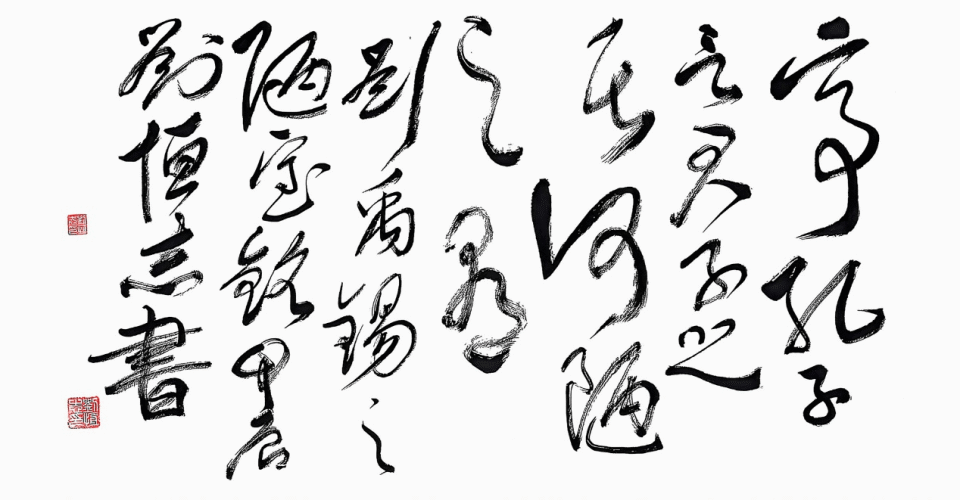 亭孔子
言君子之
居何陋
之有
劉禹錫之
陋室銘甲辰
劉恒志書